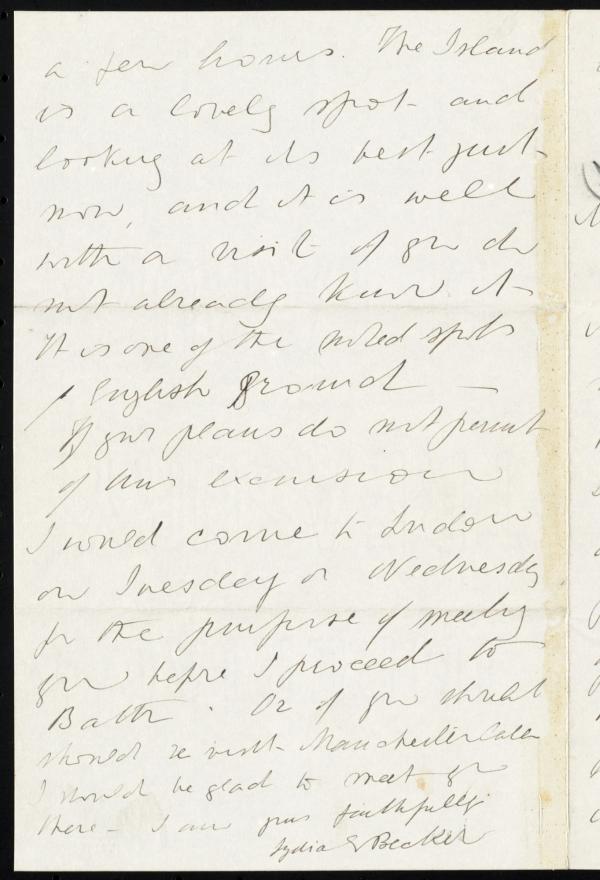 a few hours. The Island
is a lovely spot and
looking at its best just
now, and it is well
with a visit if you do
not already know it
It is one of the noted spots
of English Ground —
If your plans do not permit
of this excursion
I would come to London
on Tuesday or Wednesday
for the purpose of meeting
you before I proceed to
Bath. Or if you should
should re visit Manchester later
I should be glad to meet you
there – I am yours faithfully
Lydia E Becker